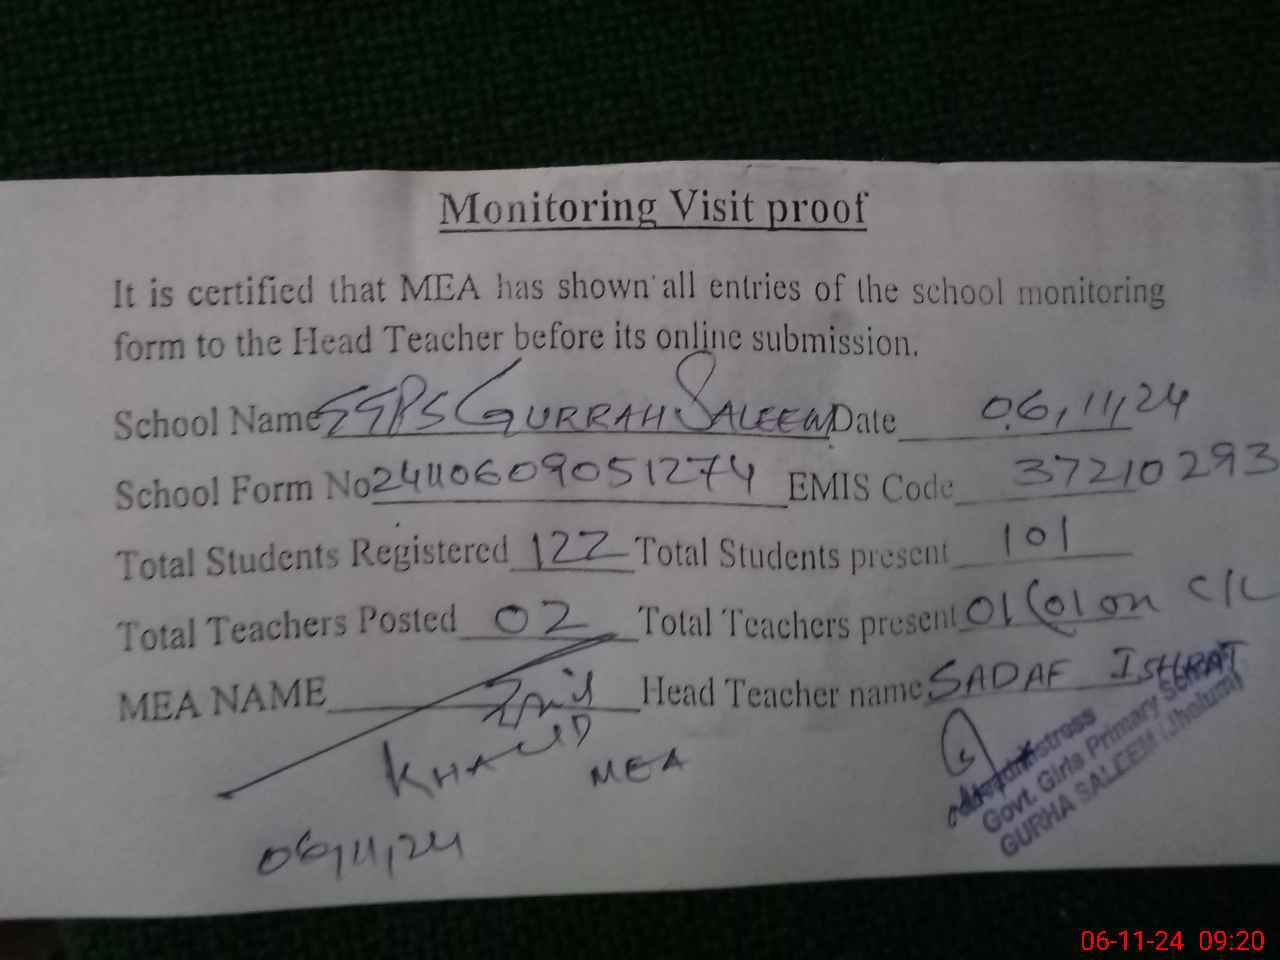 Monitoring Visit proof
It is certified that MEA has shown all entries of the school monitoring
form to the Head Teacher before its online submission.
School Name GGPS GURRAH SALEEM Date 06,11,24
School Form No 24110609051274 EMIS Code 37210293
Total Students Registered 122 Total Students present 101
Total Teachers Posted 02 Total Teachers present 01 (01 on C/L
MEA NAME Head Teacher name SADAF ISHRAT
KHALID
MEA
06,11,24
Headmistress
Govt. Girls Primary School
GURHA SALEEM (Jhelum)
06-11-24 09:20